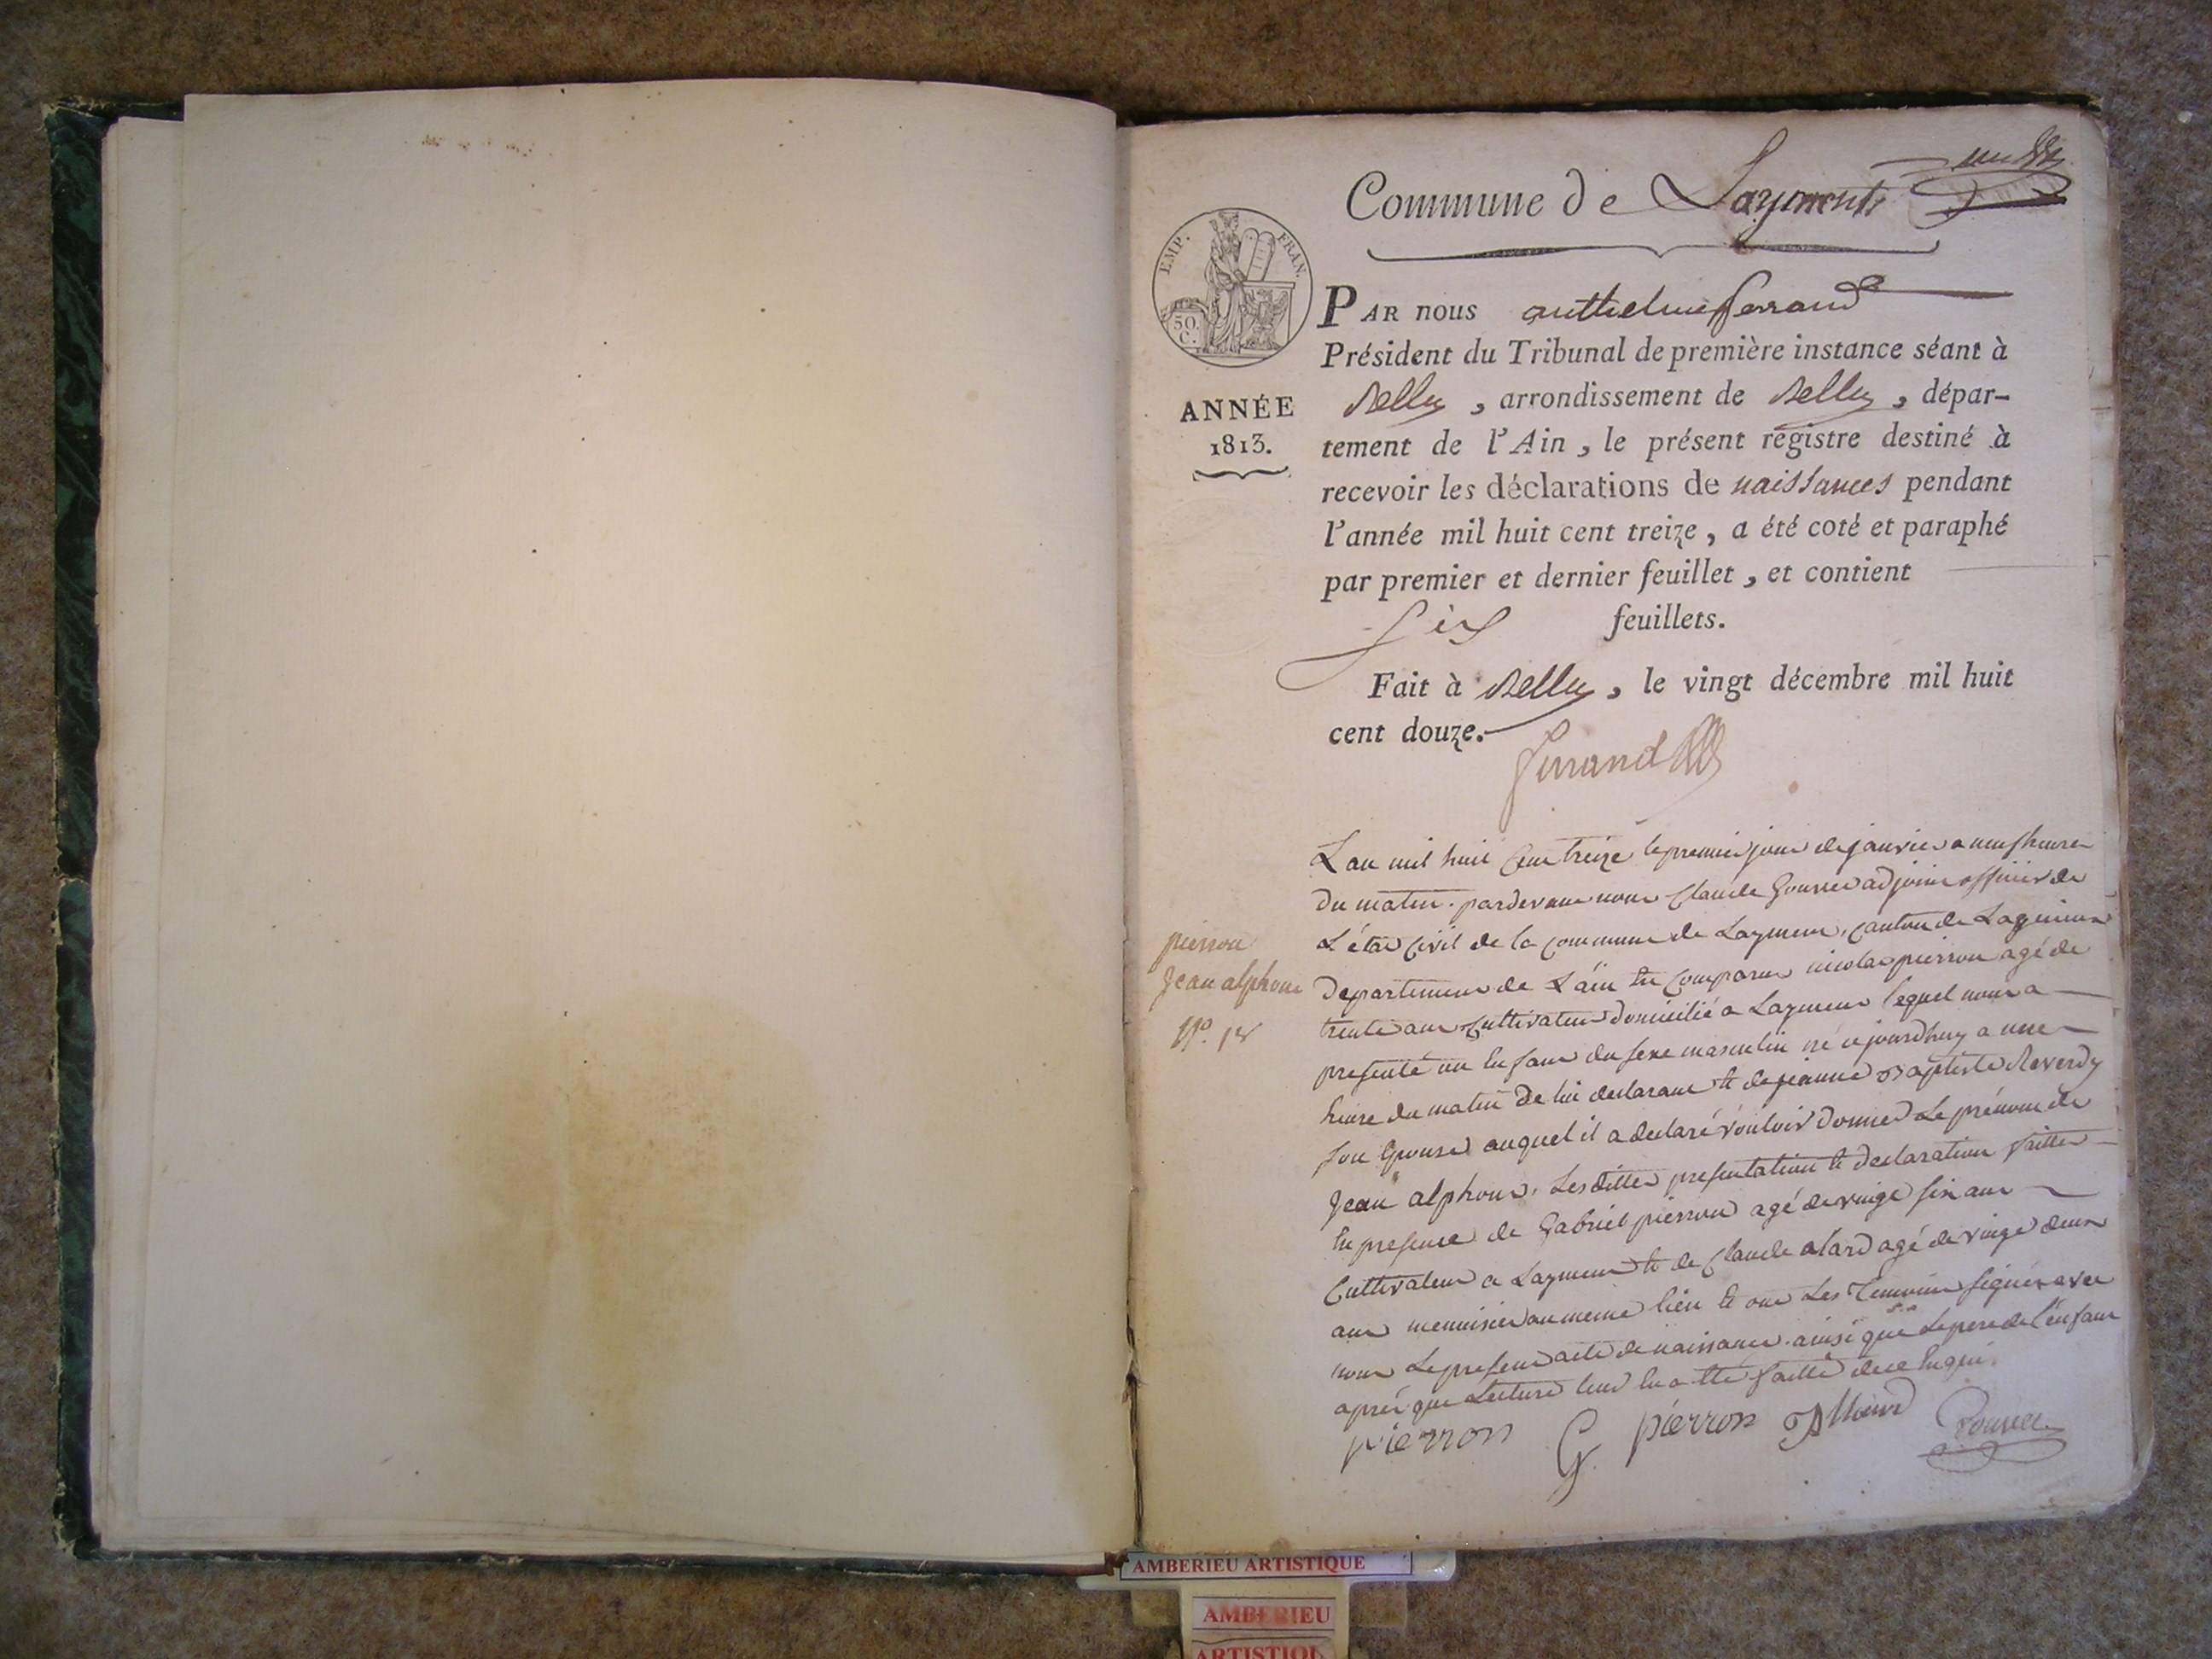 Commune de Layment
EMP. FRAN.
50. C.
ANNÉE
1813.
PAR nous anthelme ferrand
Président du Tribunal de première instance séant à
Belley, arrondissement de Belley, dépar-
tement de l'Ain, le présent registre destiné à
recevoir les déclarations de naissances pendant
l'année mil huit cent treize, a été coté et paraphé
par premier et dernier feuillet, et contient
six feuillets.
Fait à Belley, le vingt décembre mil huit
cent douze.
ferrand
pierron
Jean alphons
N°. 1er
L'an mil huit Cent treize le premier jour de janvier a neuf heures
du matin. pardevant nous Claude Gouvet adjoint officier de
L'état Civil de la Commune de Layment, Canton de Lagnieux
Departement de L'ain Est Comparu nicolas pierron agé de
trente ans Cultivateur domicilié a Layment lequel nous a
presenté un Enfant du sexe masculin né cejourdhuy a une
heure du matin De lui declarant Et de jeanne Baptiste Reverdy
son Epouse auquel il a declaré vouloir donner Le prénom de
Jean alphons. Les dittes presentation Et declaration faittes
En presence de Gabriel pierron agé de vingt six ans
Cultivateur a Layment Et de Claude alard agé de vingt deux
ans menuisier au meme lieu Et ont Les Temoins signés avec
nous Le present acte de naissance. ainsi que Le pere de L'enfant
aprés que Lecture leur En a Eté faitte
pierron G. pierron Allard Gouvet
AMBERIEU ARTISTIQUE
AMBERIEU